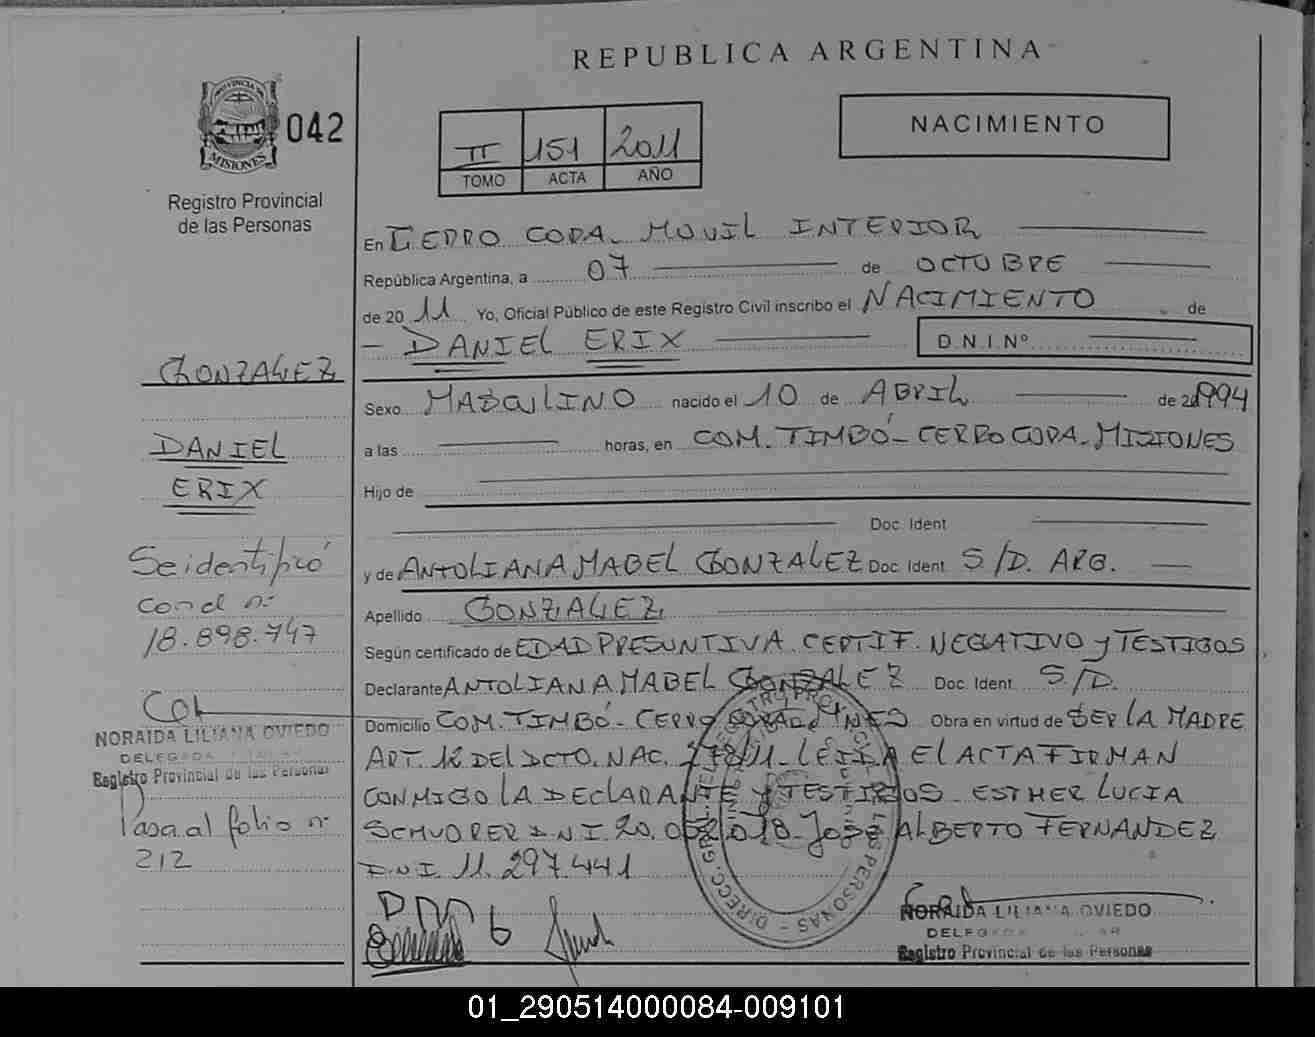 REPUBLICA ARGENTINA
PROVINCIA DE
MISIONES
042
Registro Provincial
de las Personas
II 151 2011
TOMO ACTA AÑO
NACIMIENTO
En CERRO CORA. MOVIL INTERIOR
República Argentina, a 07 de OCTUBRE
de 2011 Yo, Oficial Público de este Registro Civil inscribo el NACIMIENTO de
DANIEL ERIX D.N.I.Nº
Sexo MASCULINO nacido el 10 de ABRIL de 1994
a las horas, en COM. TIMBÓ - CERRO CORA. MISIONES
Hijo de
Doc. Ident
y de ANTOLIANA MABEL GONZALEZ Doc. Ident S/D. ARG.
Apellido GONZALEZ
Según certificado de EDAD PRESUNTIVA. CERTIF. NEGATIVO y TESTIGOS
Declarante ANTOLIANA MABEL GONZALEZ Doc. Ident. S/D.
Domicilio COM. TIMBÓ - CERRO CORA Obra en virtud de SER LA MADRE
ART. 12 DEL DCTO. NAC. 278/11 - LEIDA EL ACTA FIRMAN
CONMIGO LA DECLARANTE y TESTIGOS ESTHER LUCIA
D.N.I. 20. JOSE ALBERTO FERNANDEZ
D.N.I. 11.297.441
NORAIDA LILIANA OVIEDO
DELEGADA
Registro Provincial de las Personas
GONZALEZ
DANIEL
ERIX
Se identificó
con el nº
18.898.747
NORAIDA LILIANA OVIEDO
DELEGADA
Registro Provincial de las Personas
Pasa al folio nº
212
01_290514000084-009101